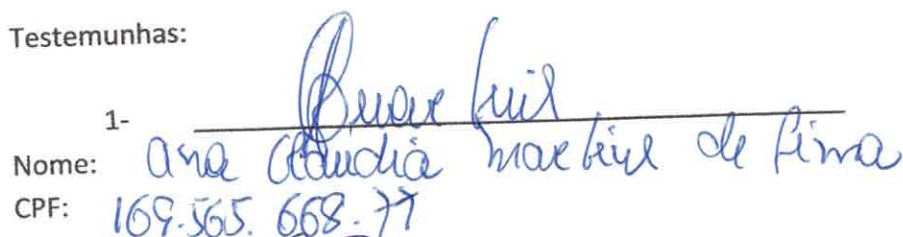 Testemunhas:
1-
Nome: Ana Claudia Martins de Lima
CPF: 169.565.668-77